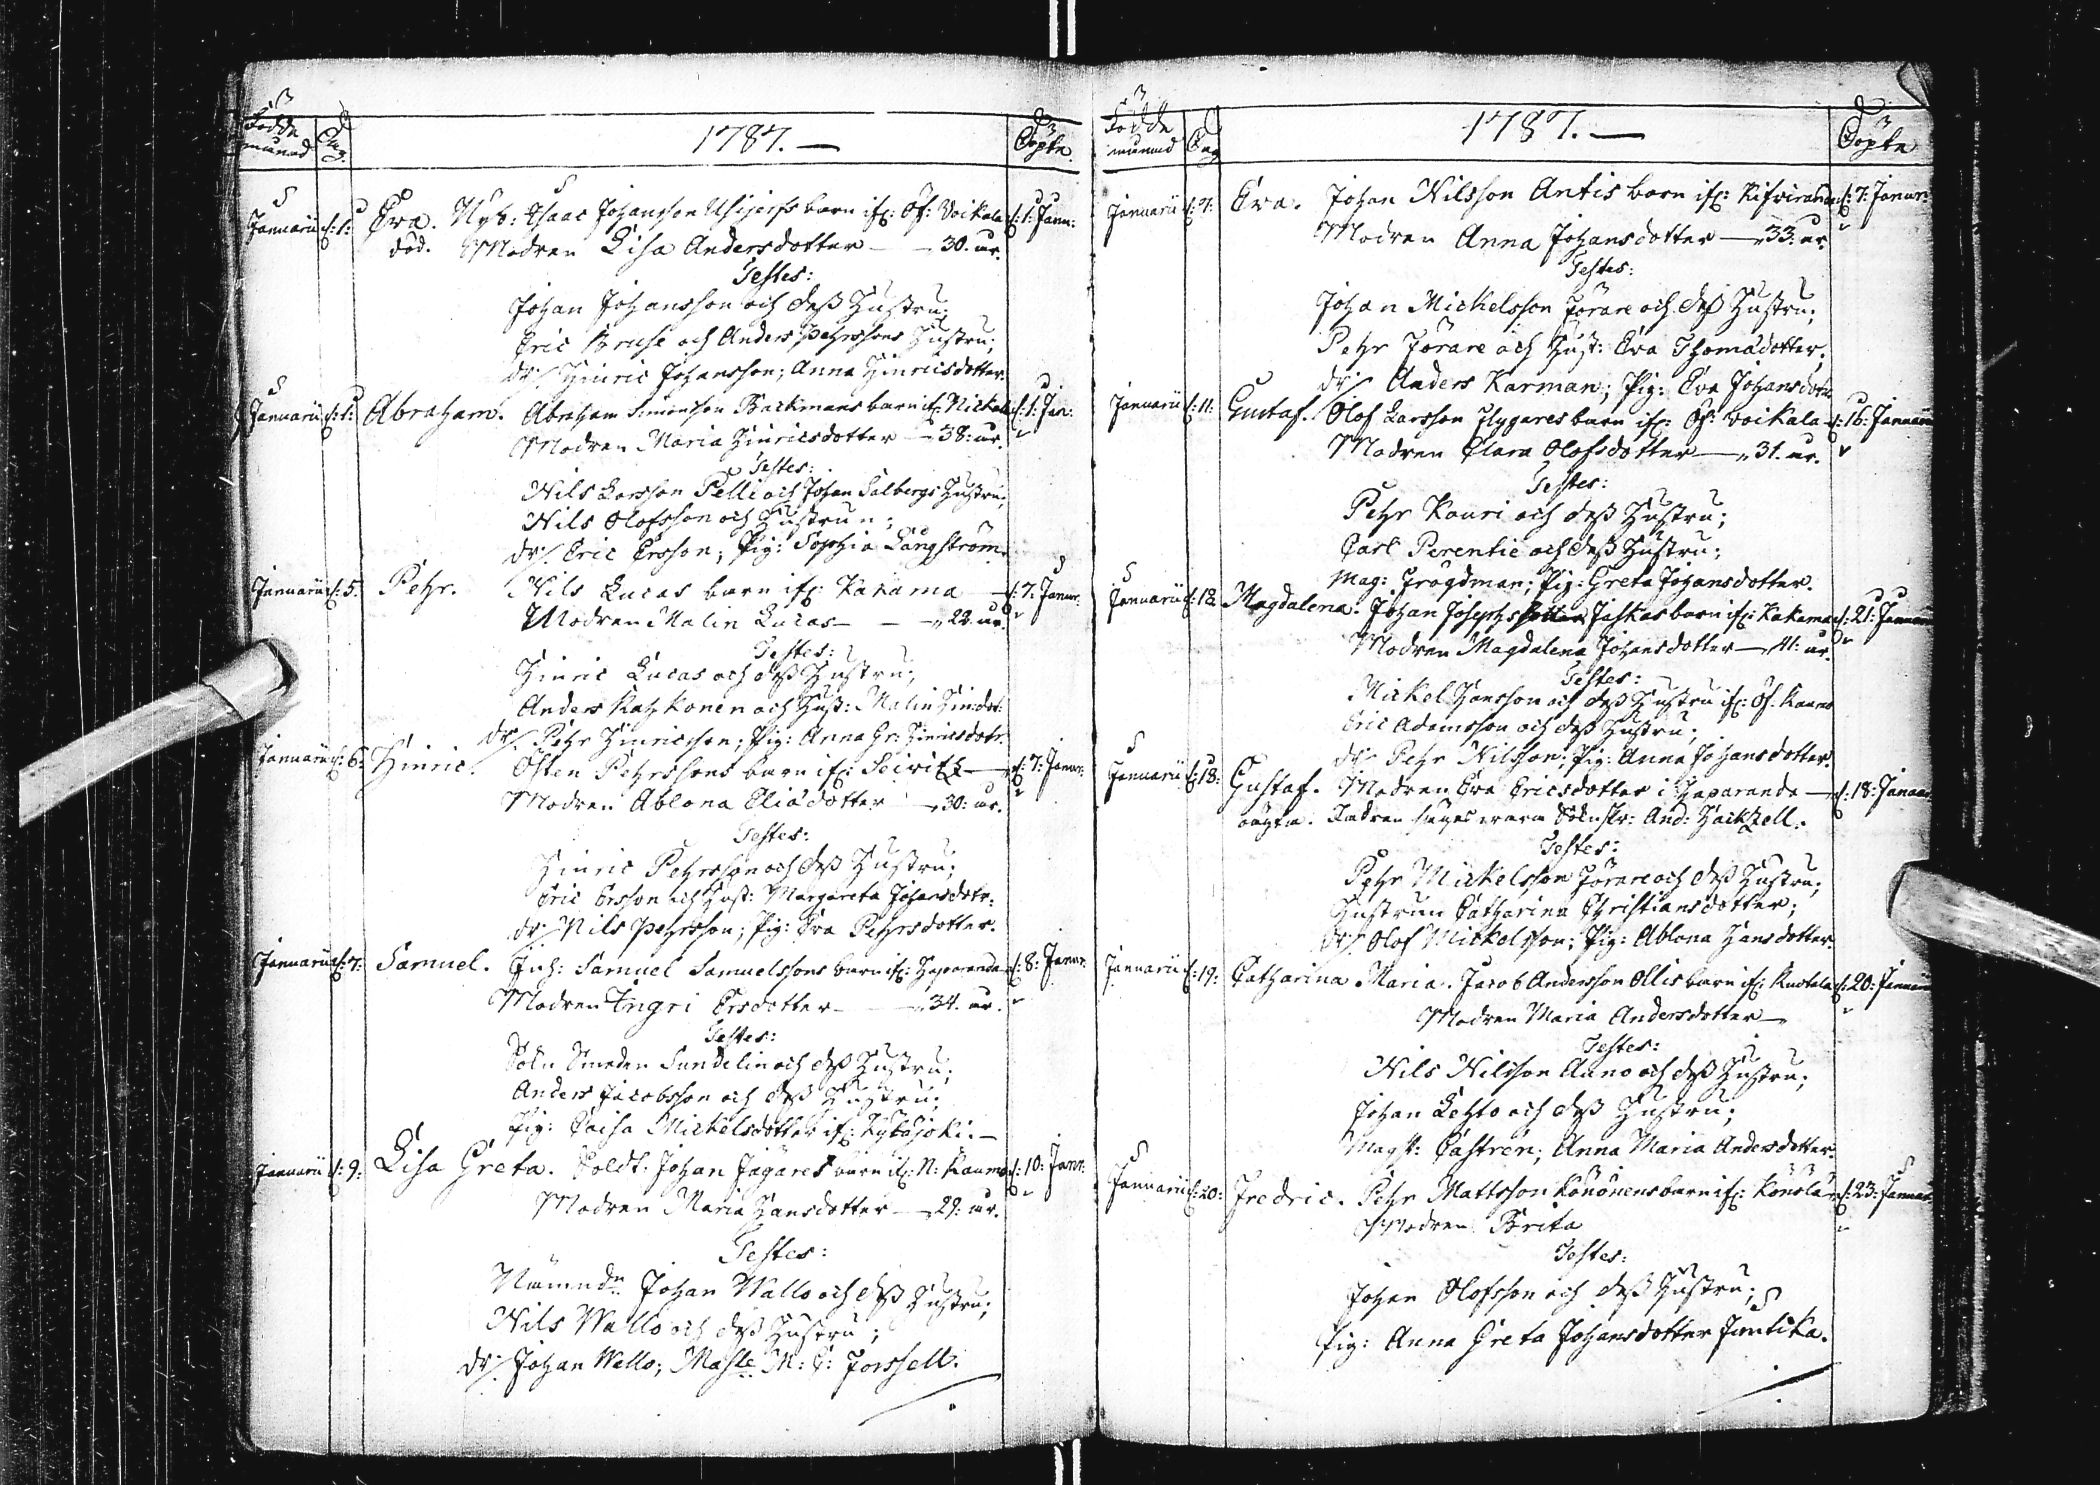 Födde månad Dag 1787.— Döpte
Januarii d: 1: Eva. Nyb: Isaac Johansson barn ifr: Öf: Voikala d: 1: Janu:
död. Modren Lisa Andersdotter — 30. år.
Testes:
Johan Johansson och dess Hustru;
Eric Kruse och Anders Pehrssons Hustru;
dr: Hinric Johansson; Anna Hinricsdotter.
Januarii d: 1: Abraham. Abraham Simonsson Backmans barn ifr: Nickala d: 1: Jan:
Modren Maria Hinricsdotter — 38: år.
Testes:
Nils Larsson Pelli och Johan Salbergs Hustru;
Nils Olofsson och Hustrun;
dr: Eric Ersson; Pig: Sophia Långström.
Januarii d: 5. Pehr. Nils Lucas barn ifr: Kakama — d: 7: Janur:
Modren Malin Lucas — — 22. år.
Testes:
Hinric Lucas och dess Hustru;
Anders Katzkonen och Hust: Malin Hindot:
dr: Pehr Hinricsson; Pig: Anna Gr: Hinricsdotr.
Januarii d: 6: Hinric. Östen Pehrssons barn ifr: Seivitz — d: 7: Janur:
Modren Ablona Eliædotter — 30: år.
Testes:
Hinric Pehrsson och dess Hustru;
Eric Ersson och Hust: Margareta Johansdotr:
dr: Nils Pehrsson; Pig: Eva Pehrsdotter.
Januarii d: 7: Samuel. Inh: Samuel Samuelssons barn ifr: Haparanda d: 8: Janur:
Modren Ingri Ersdotter — — 34. år.
Testes:
Sökn Smeden Sundelin och dess Hustru;
Anders Jacobsson och dess Hustru;
Pig: Caisa Mickelsdotter ifr: Kyläjoki.—
Januarii d: 9: Lisa Greta. Soldt: Johan Jägares barn ifr: N: Raumo d: 10: Janr:
Modren Maria Hansdotter — 29: år.
Testes:
Nämndn Johan Wallo och dess Hustru;
Nils Wallo och dess Hustru;
dr: Johan Wallo; Masle M: C: Forssell.
Födde månad Dag 1787.— Döpte
Januarii d: 7: Eva. Johan Nilsson Antis barn ifr: Kifviranda d: 7: Janur:
Modren Anna Johansdotter — 33: år.
Testes:
Johan Mickelsson Förare och dess Hustru;
Pehr Förare och Hust: Eva Thomædotter.
dr: Anders Karman; Pig: Eva Johansdotr
Januarii d: 11: Gustaf. Olof Larsson Nygares barn ifr: Öf: Voikala d: 16: Januarii
Modren Clara Olofsdotter — 31. år.
Testes:
Pehr Kauri och dess Hustru;
Carl Perentie och dess Hustru;
Mag: Frogdman; Pig: Greta Johansdotter.
Januarii d: 18. Magdalena. Johan Josephsson Jaskas barn ifr: Kakama d: 21: Januarii
Modren Magdalena Johansdotter — 41: år.
Testes:
Mickel Hansson och dess Hustru ifr: Öf: Raumo
Eric Adamsson och dess Hustru;
dr: Pehr Nilsson; Pig: Anna Johansdotter.
Januarii d: 18: Gustaf. Modren Eva Ericsdotter i Haparanda — d: 18: Januari
oägta. Fadren säges wara Sökn Skr: And: Hackzell.
Testes:
Pehr Mickelsson Förare och dess Hustru;
Hustrun Catharina Christiansdotter;
dr: Olof Mickelsson; Pig: Ablona Hansdotter.
Januarii d: 19: Catharina Maria. Jacob Andersson Ollis barn ifr: Kuotala d: 20: Januarii
Modren Maria Andersdotter —
Testes:
Nils Nilsson Auno och dess Hustru;
Johan Lehto och dess Hustru;
Magst: Castren; Anna Maria Andersdotter.
Januarii d: 20: Fredric. Pehr Mattsson Könönens barn ifr: Könölä d: 23: Januarii
Modren Brita
Testes:
Johan Olofsson och dess Hustru;
Pig: Anna Greta Johansdotter Funtika.